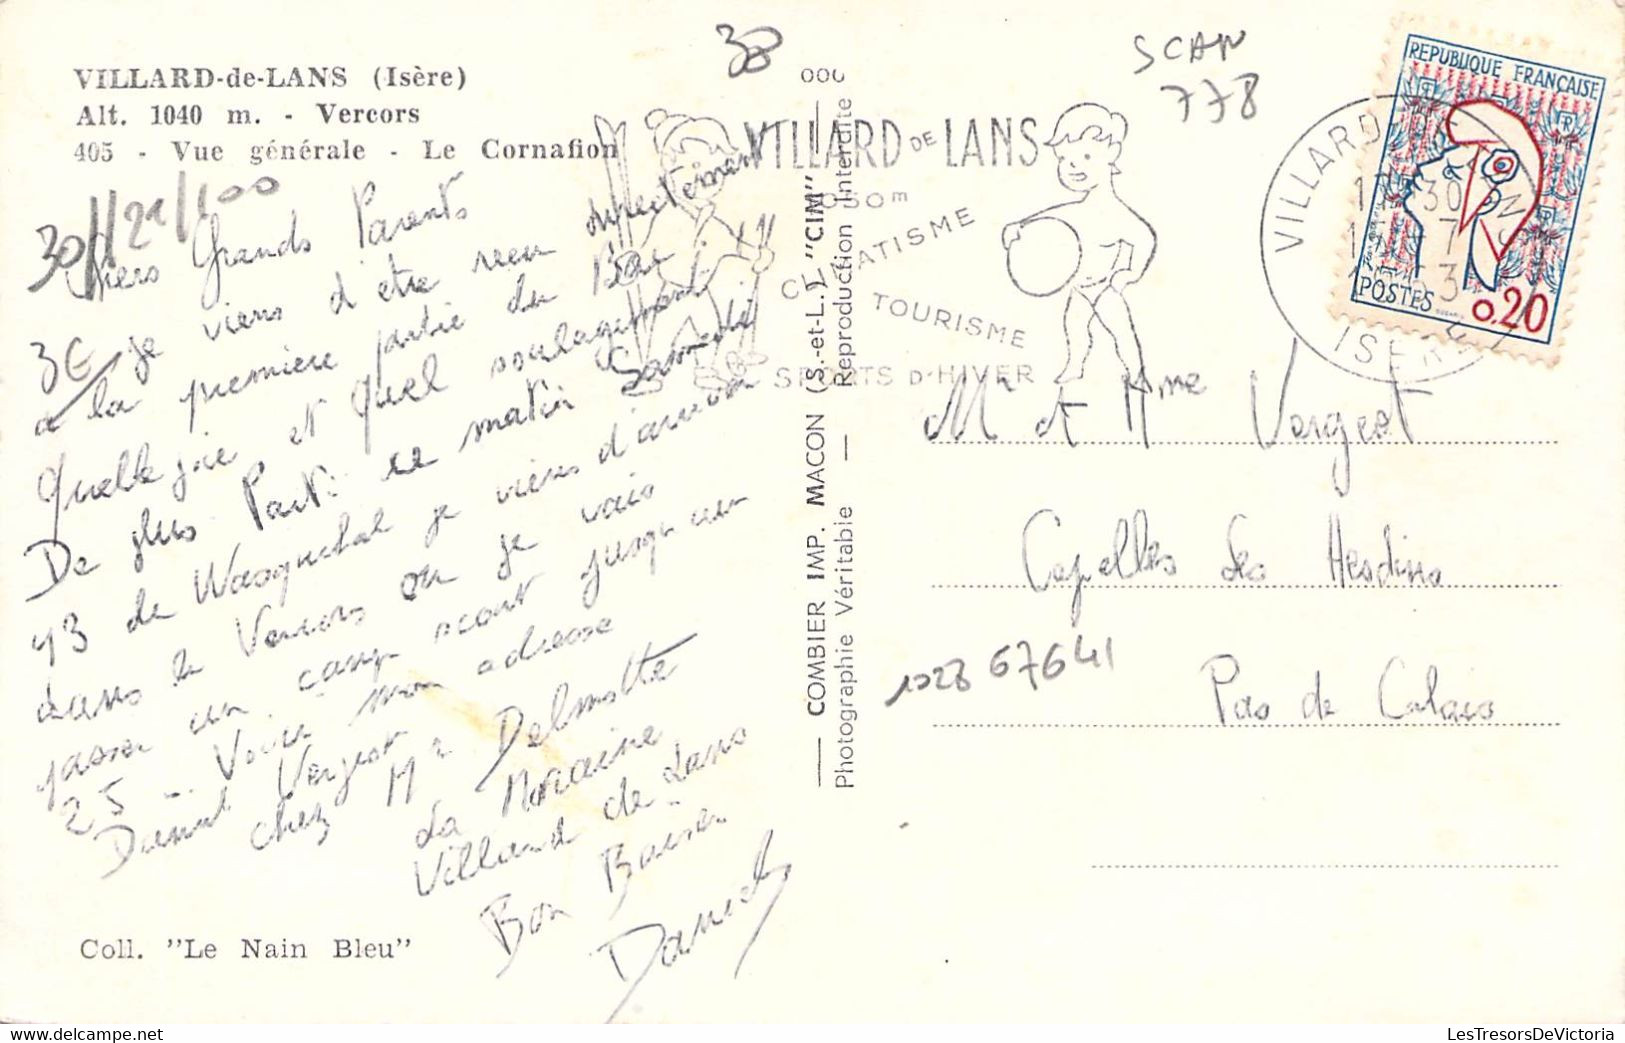 VILLARD-de-LANS (Isère)
Alt. 1040 m. - Vercors
405 - Vue générale - Le Cornafion
30/21/100
3€
Chers Grands Parents
je viens d'etre reçu directement
a la première partie du Bac
Quelle joie et quel soulagement !!!
De plus Parti ce matin Samedi
13 de Wasquehal je viens d'arriver
dans le Vercors ou je vais
passer un camp scout jusqu'au
25 . Voici mon adresse
Daniel Vergeot
chez Mr Delmotte
La Moraine
Villard de Lans
Bon Baiser
Daniel
Coll. "Le Nain Bleu"
30
000
COMBIER IMP. MACON (S.-et-L.) "CIM"
Photographie Véritable — Reproduction Interdite
VILLARD DE LANS
1050m
CLIMATISME
TOURISME
SPORTS D'HIVER
SCAN
778
REPUBLIQUE FRANÇAISE
POSTES
0.20
VILLARD DE LANS
17H30
ISERE
Mr et Mme Vergeot
Capelles les Hesdins
Pas de Calais
1028 67641
LesTresorsDeVictoria